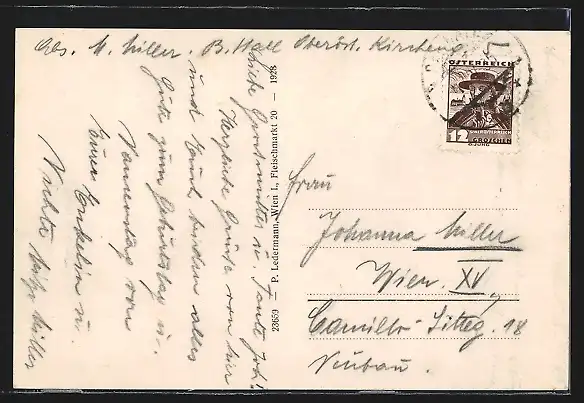 Abs. M. Miller. B. Hall Oberöst. Kirchweg
Liebe Grossmutter u. Tante Joh!
Herzliche Grüsse von hier
und Euch beiden alles
Gute zum Geburtstag u.
Namenstag von
Eurer Enkelin u.
Nichte Mitzi Miller
23659 — P. Ledermann, Wien I., Fleischmarkt 20 — 1928
ÖSTERREICH
12
OBERÖSTERREICH
GROSCHEN
Frau
Johanna Miller
Wien XV,
Camillo-Sitteg. 18
Neubau.